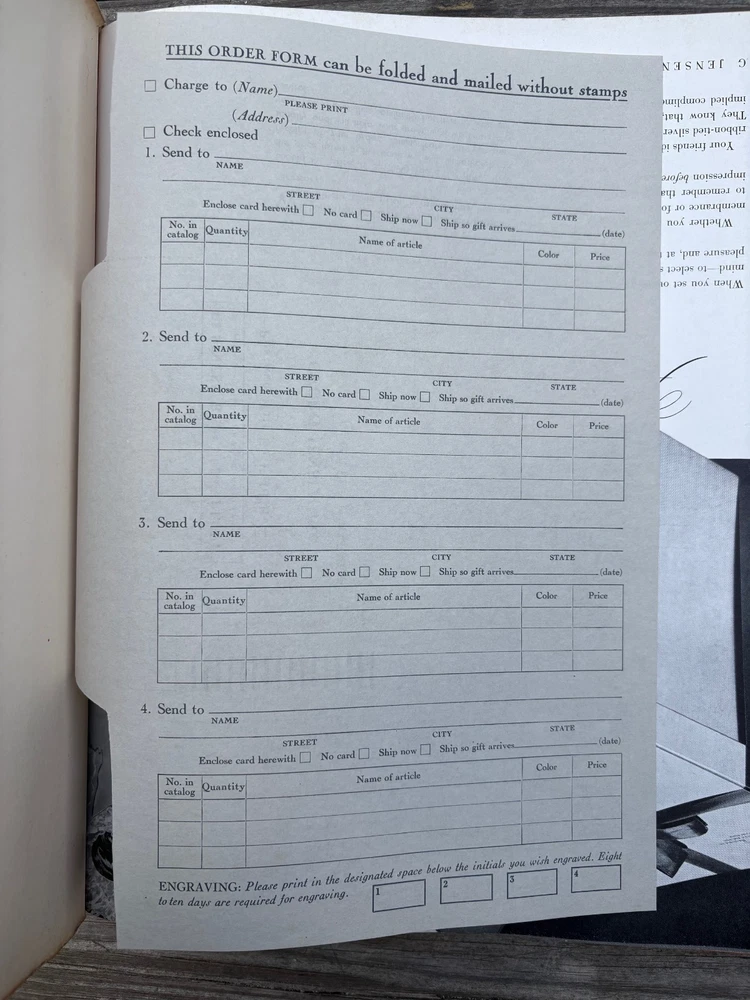 THIS ORDER FORM can be folded and mailed without stamps
Charge to (Name)
PLEASE PRINT
(Address)
Check enclosed
1. Send to
NAME
STREET CITY STATE
Enclose card herewith No card Ship now Ship so gift arrives (date)
No. in catalog Quantity Name of article Color Price
2. Send to
NAME
STREET CITY STATE
Enclose card herewith No card Ship now Ship so gift arrives (date)
No. in catalog Quantity Name of article Color Price
3. Send to
NAME
STREET CITY STATE
Enclose card herewith No card Ship now Ship so gift arrives (date)
No. in catalog Quantity Name of article Color Price
4. Send to
NAME
STREET CITY STATE
Enclose card herewith No card Ship now Ship so gift arrives (date)
No. in catalog Quantity Name of article Color Price
ENGRAVING: Please print in the designated space below the initials you wish engraved. Eight
to ten days are required for engraving. 1 2 3 4
When you set
mind—to select
pleasure and, at
Whether you
membrance or
to remember
impression before
Your friends
ribbon-tied silver
They know that,
implied
G JENSEN